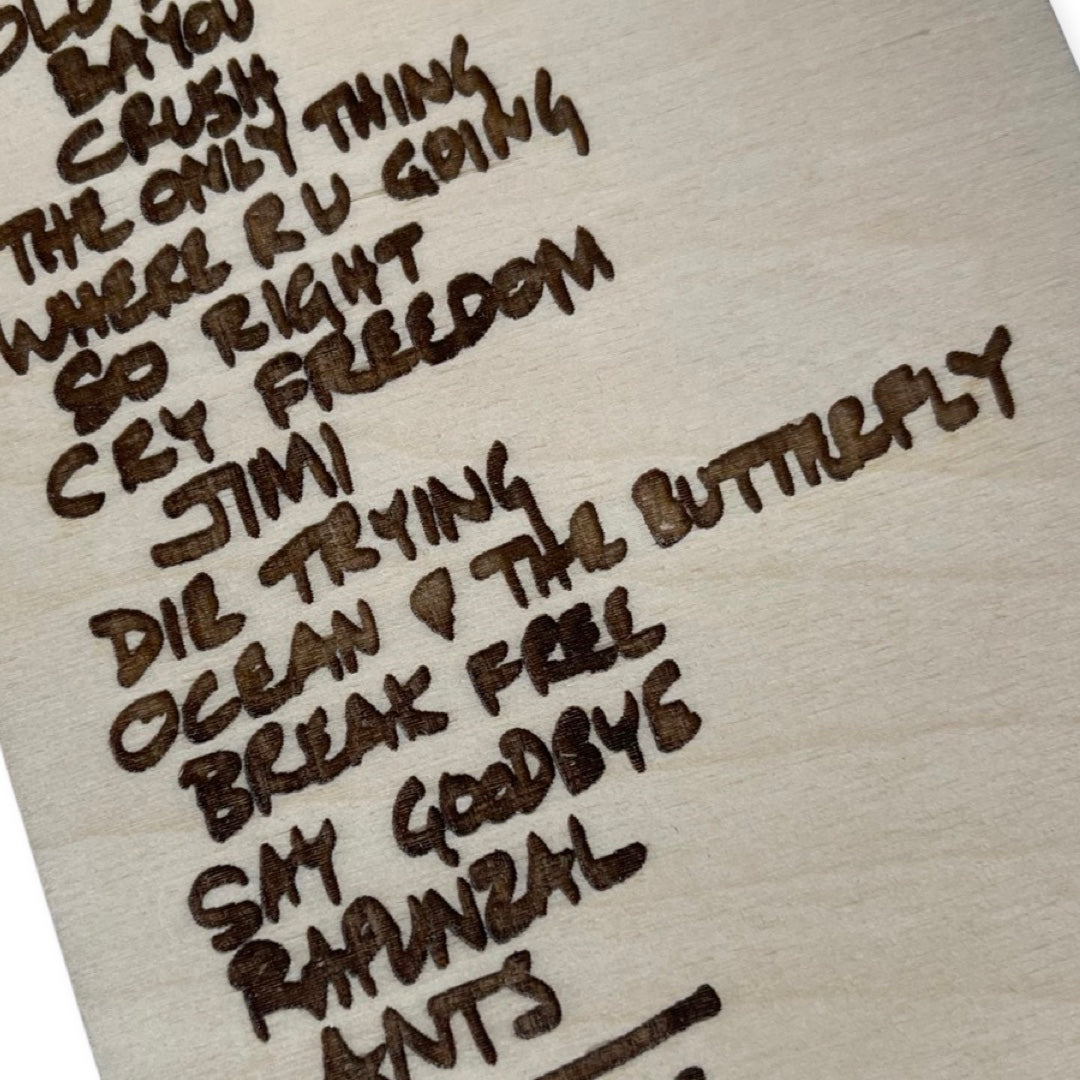 OLD
BAYOU
CRUSH
THE ONLY THING
WHERE R U GOING
SO RIGHT
CRY FREEDOM
JIMI
DIE TRYING
OCEAN & THE BUTTERFLY
BREAK FREE
SAY GOODBYE
RAPUNZAL
ANTS